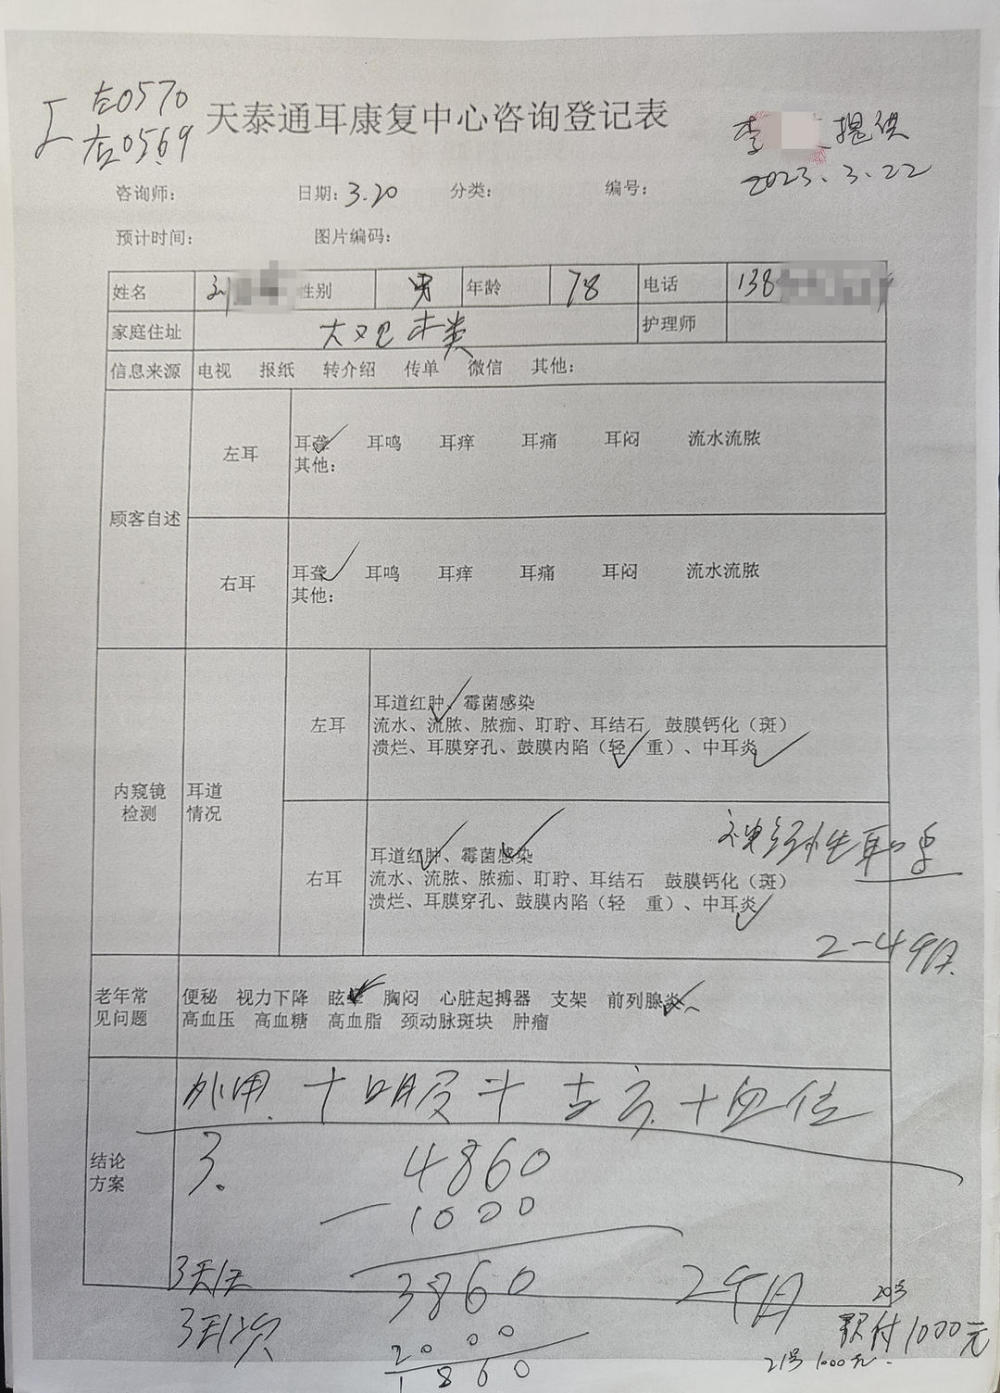 左0570
右0569
天泰通耳康复中心咨询登记表
李 提供
2023.3.22
咨询师: 日期: 3.20 分类: 编号:
预计时间: 图片编码:
姓名 刘 性别 男 年龄 78 电话 138
家庭住址 护理师
信息来源 电视 报纸 转介绍 传单 微信 其他:
顾客自述
左耳
耳聋 耳鸣 耳痒 耳痛 耳闷 流水流脓
其他:
右耳
耳聋 耳鸣 耳痒 耳痛 耳闷 流水流脓
其他:
内窥镜检测
耳道情况
左耳
耳道红肿、霉菌感染
流水、流脓、脓痂、耵聍、耳结石 鼓膜钙化（斑）
溃烂、耳膜穿孔、鼓膜内陷（轻 重）、中耳炎
右耳
耳道红肿、霉菌感染
流水、流脓、脓痂、耵聍、耳结石 鼓膜钙化（斑）
溃烂、耳膜穿孔、鼓膜内陷（轻 重）、中耳炎
神经性耳聋
2-4个月
老年常见问题
便秘 视力下降 眩晕 胸闷 心脏起搏器 支架 前列腺炎
高血压 高血糖 高血脂 颈动脉斑块 肿瘤
结论方案
外用
3.
4860
-1000
3860
2000
1860
3天1次
2个月
20号
现付1000元
21号1000元